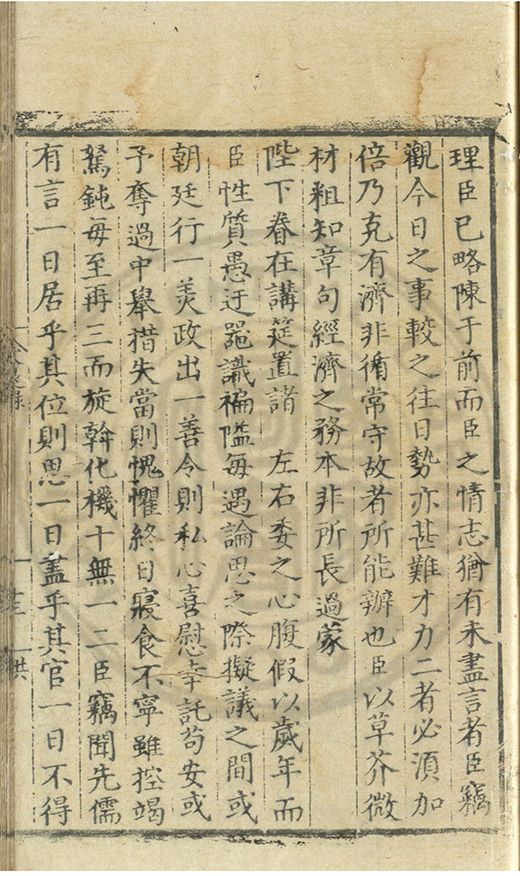 理臣已略陳于前而臣之情志猶有未盡言者臣竊
觀今日之事較之往日勢亦甚難才力二者必湏加
倍乃克有濟非循常守故者所能辦也臣以草芥微
材粗知章句經濟之務本非所長過蒙
陛下眷在講筵置諸 左右委之心腹假以歲年而
臣性質愚迂噐識褊隘每遇論思之際擬議之間或
朝廷行一羙政出一善令則私心喜慰幸託苟安或
予奪過中舉措失當則愧懼終日寢食不寧雖控竭
駑鈍每至再三而旋斡化機十無一二臣竊聞先儒
有言一日居乎其位則思一日盡乎其官一日不得